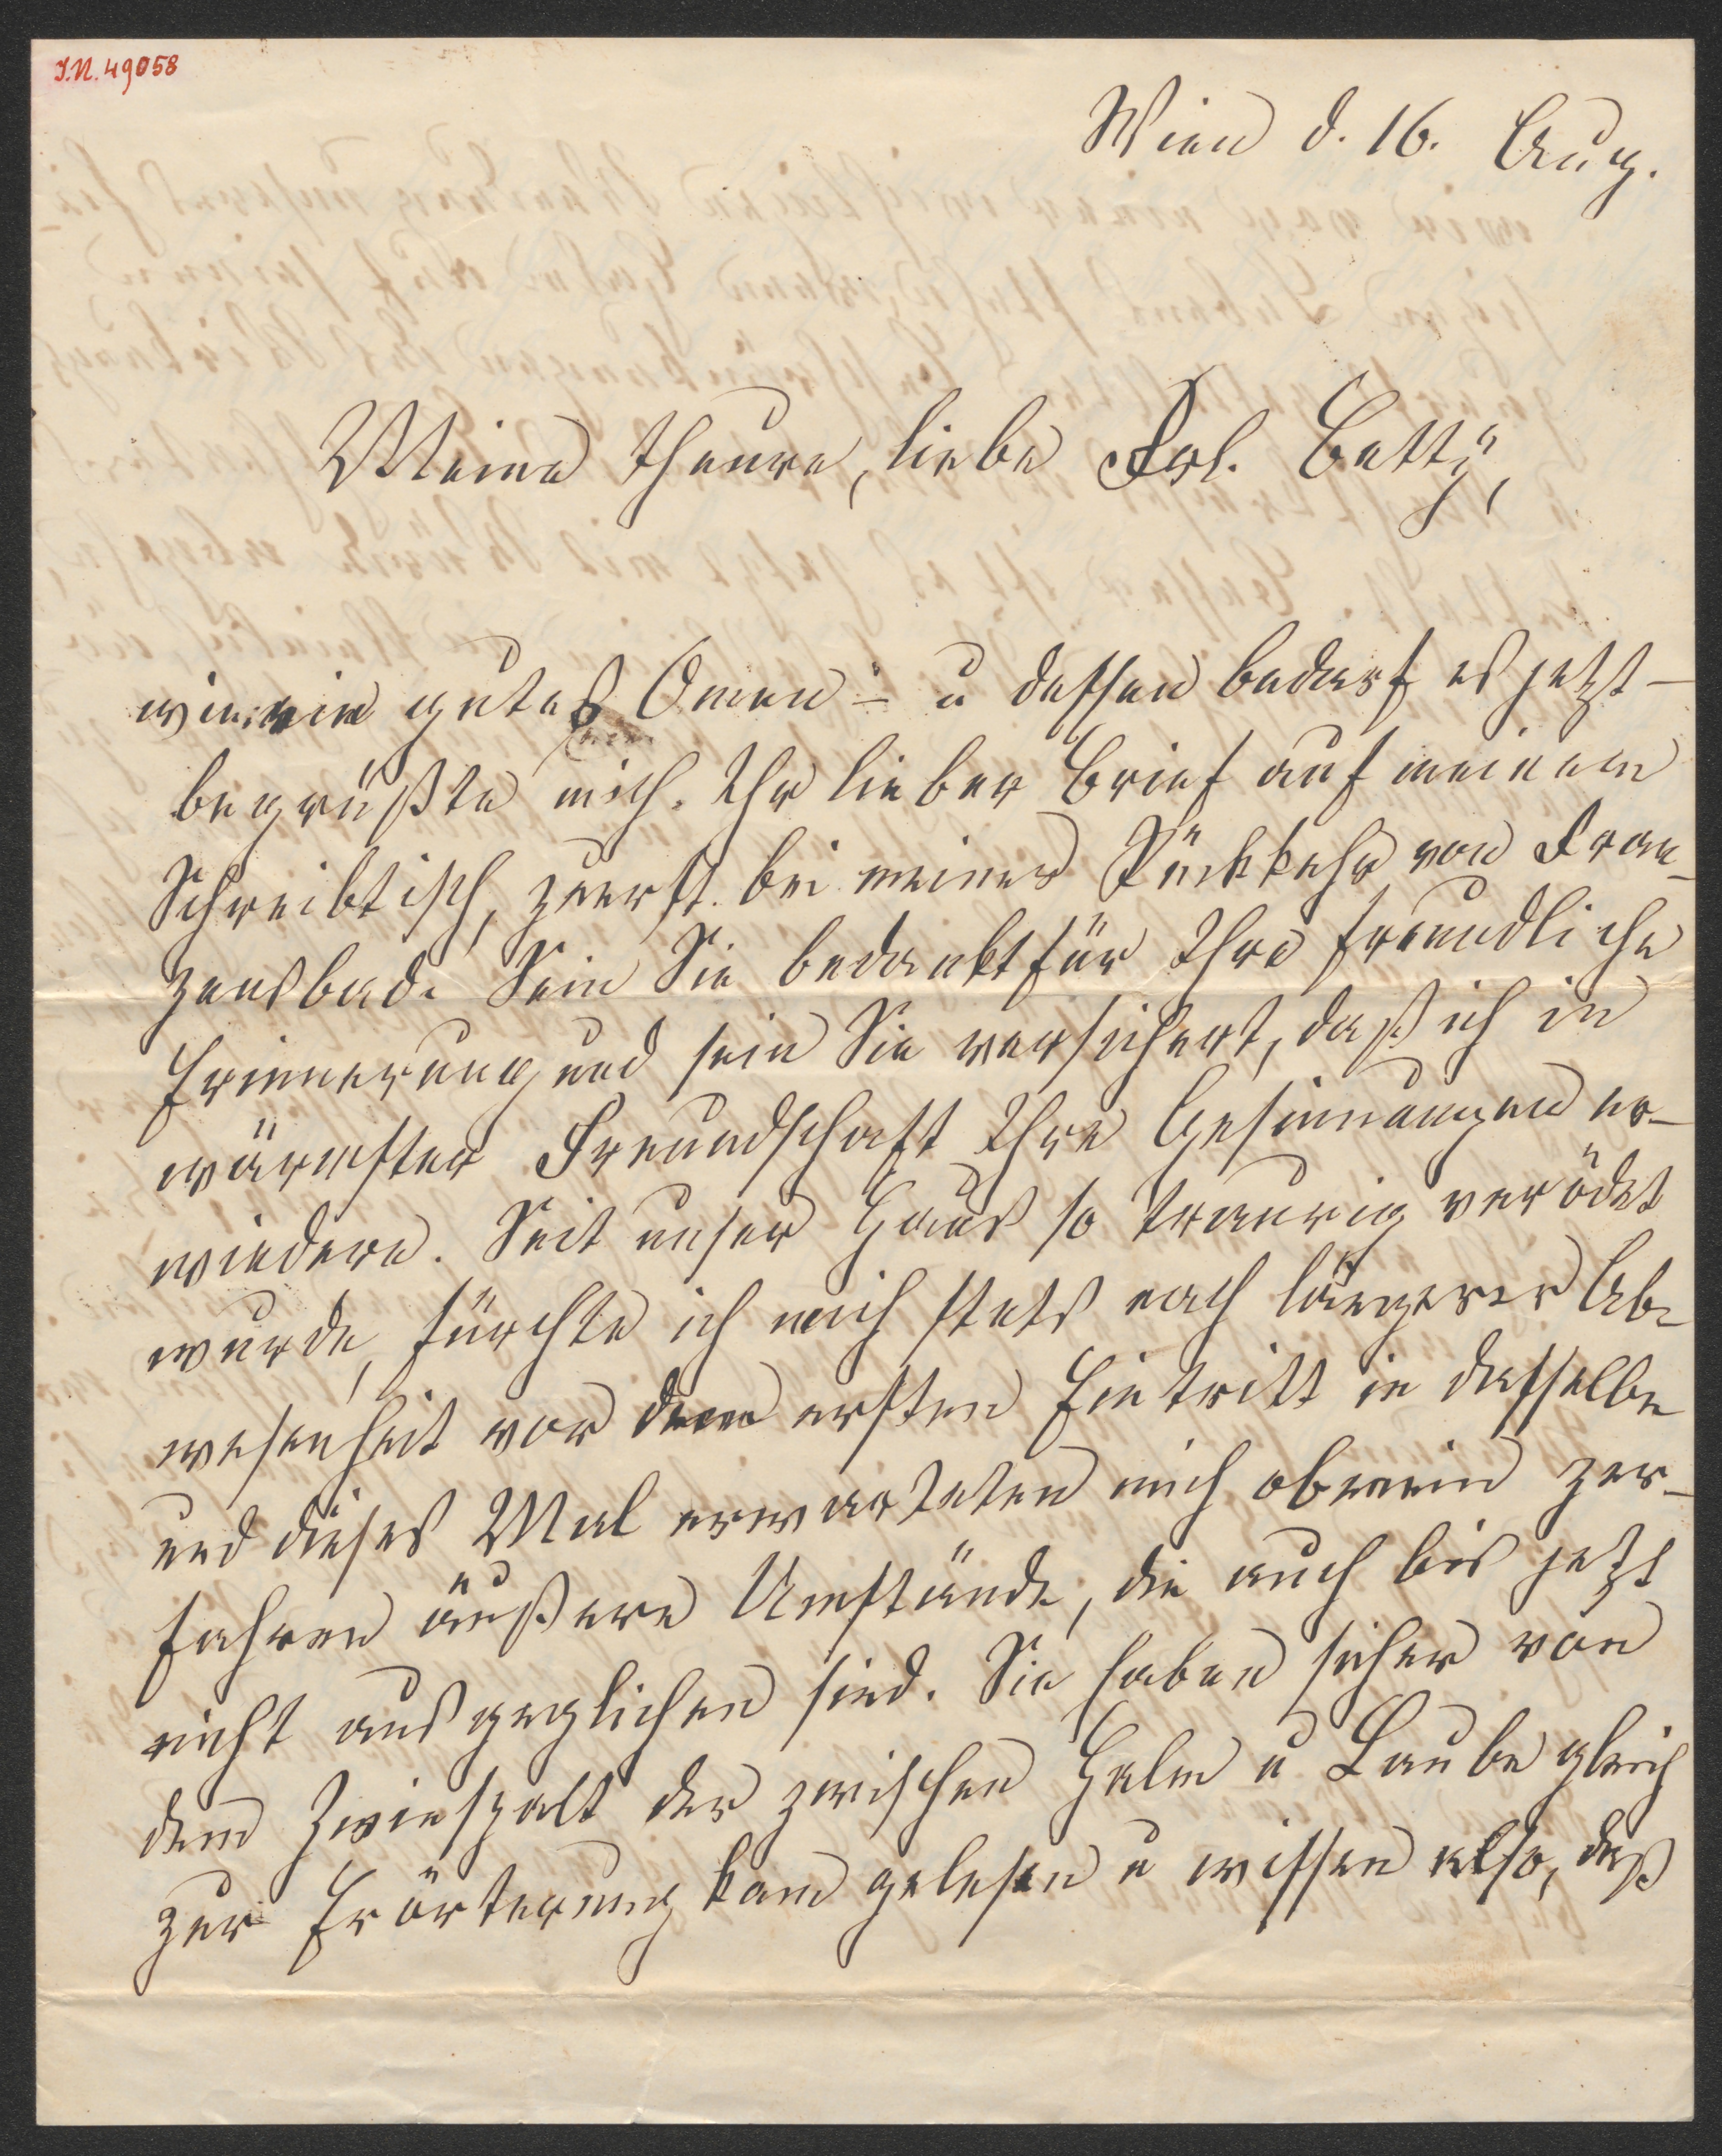 I.N. 49058
Wien d. 16. Aug.
Meine theure, liebe Frl. Betty,
wie ein gutes Omen – u dessen bedarf es jetzt –
begrüßte mich Ihr lieber Brief auf meinem
Schreibtisch, zuerst bei meiner Rückkehr von Fran-
zensbad. Sein Sie bedankt für Ihre freundliche
Erinnerung und sein Sie versichert, daß ich in
wärmster Freundschaft Ihre Gesinnungen er-
wiedere. Seit unser Haus so traurig verödet
wurde, fürchte ich mich stets nach längerer Ab-
wesenheit vor dem ersten Eintritt in dasselbe
und dieses Mal erwarteten mich obenein zer-
fahrene äußere Umstände, die auch bis jetzt
nicht ausgeglichen sind. Sie haben sicher von
dem Zwiespalt der zwischen Halm u Laube gleich
zur Erörterung kam gelesen u wissen also, daß